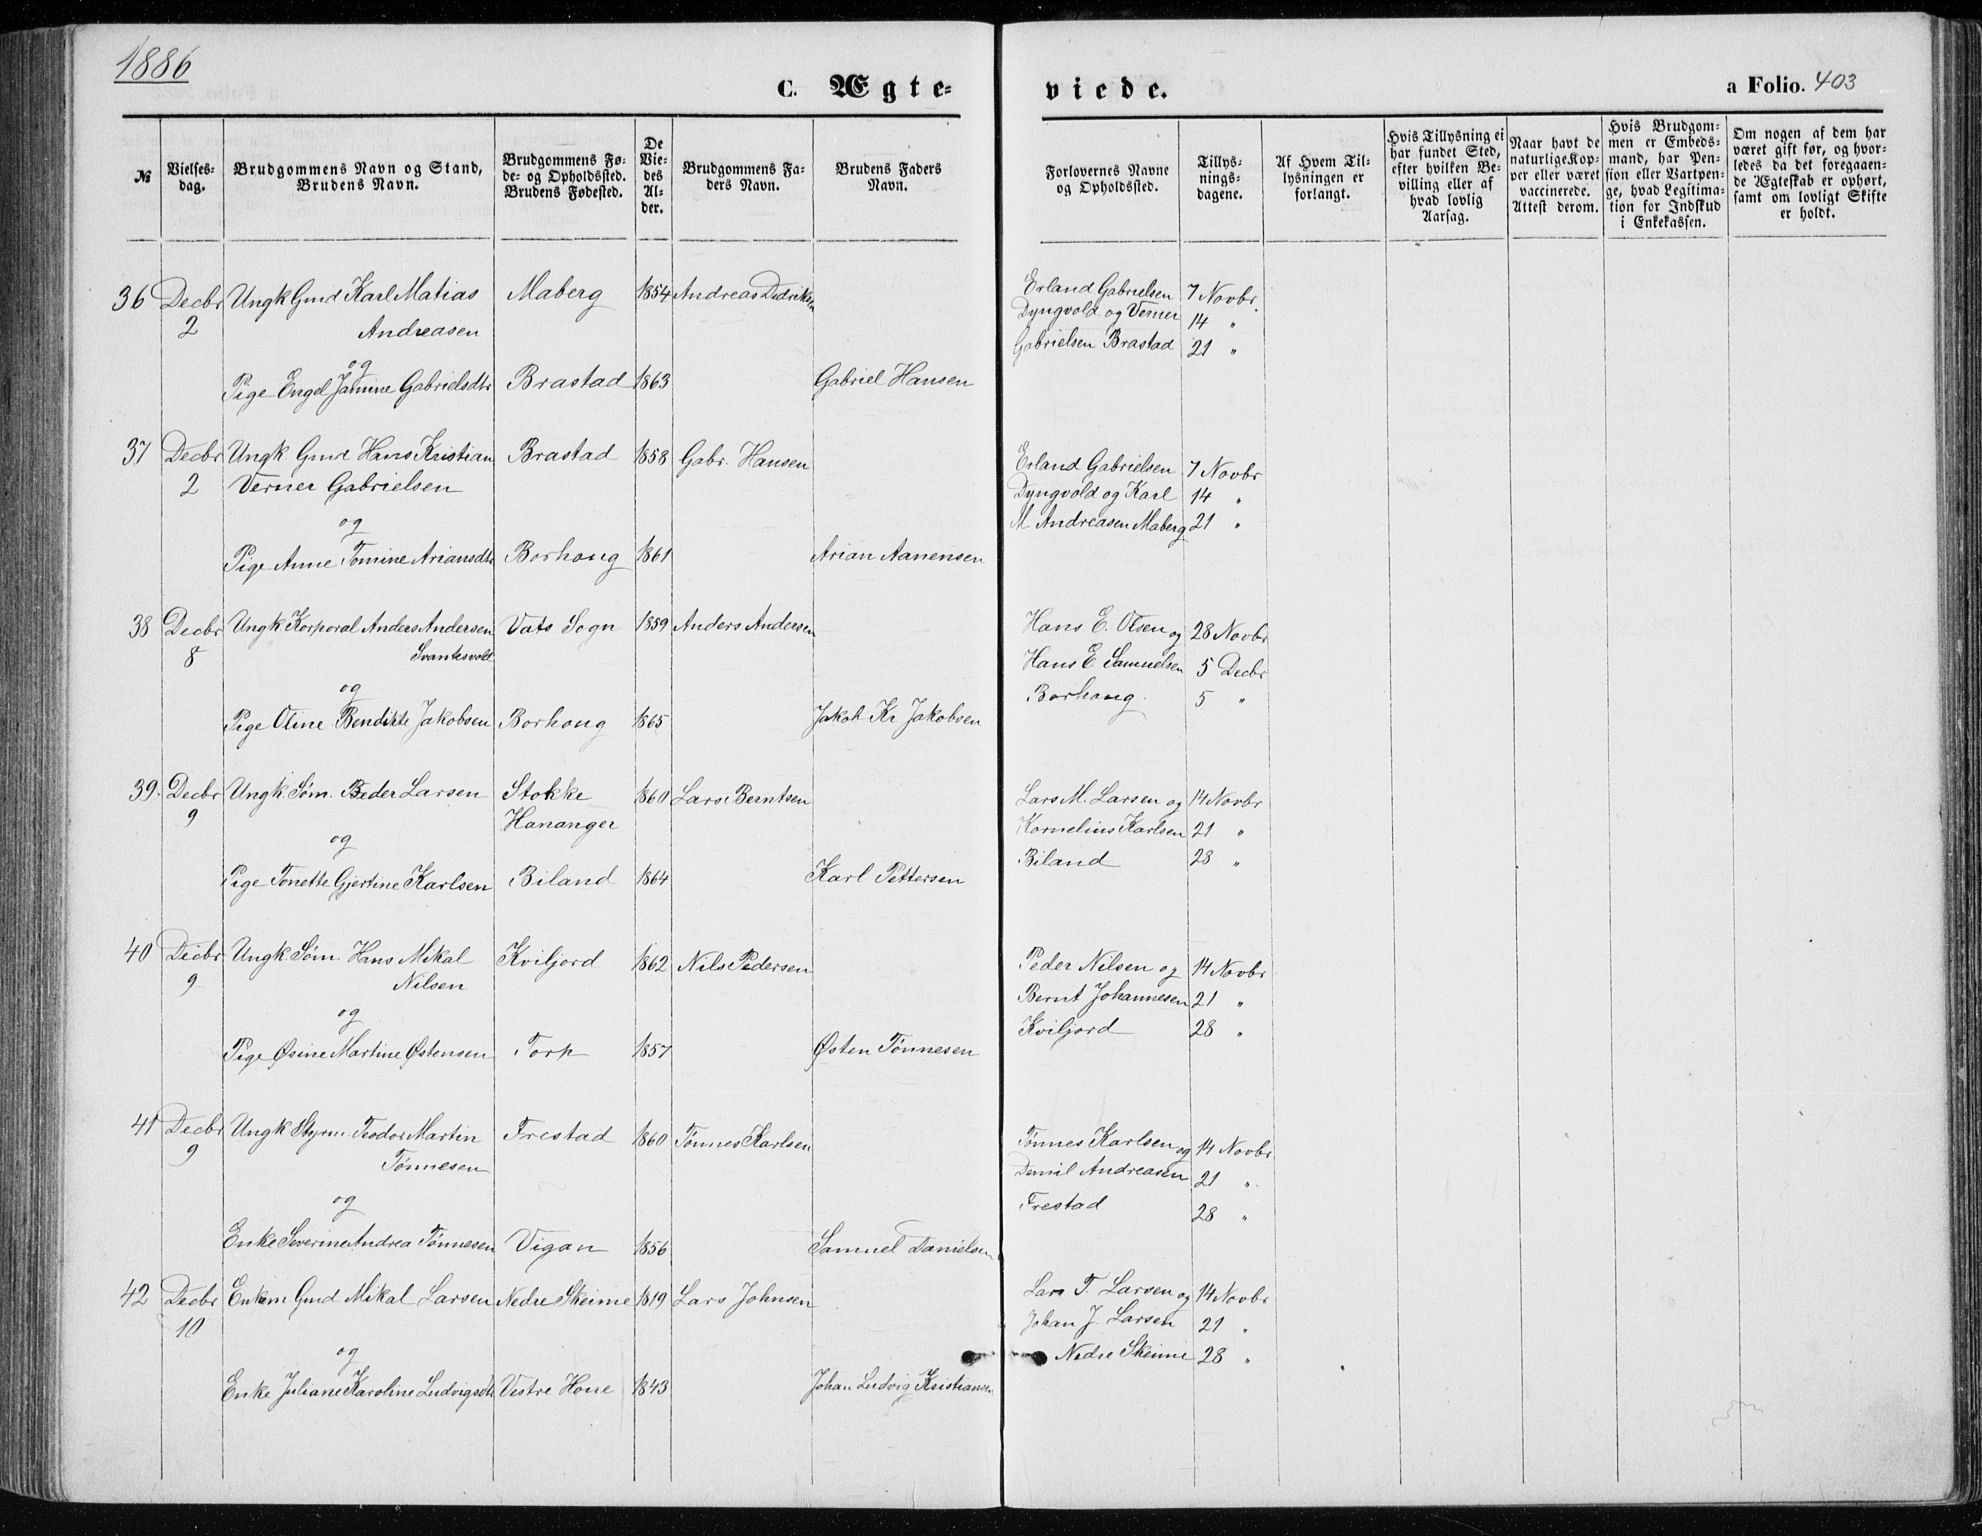 1886
C. Ægteviede. a Folio. 403
№ | Vielsesdag. | Brudgommens Navn og Stand, Brudens Navn. | Brudgommens Føde- og Opholdssted. Brudens Fødested. | De Viedes Alder. | Brudgommens Faders Navn. | Brudens Faders Navn. | Forlovernes Navne og Opholdssted. | Tillysningsdagene. | Af Hvem Tillysningen er forlangt. | Hvis Tillysning ei har fundet Sted, efter hvilken Bevilling eller af hvad lovlig Aarsag. | Naar havt de naturlige Kopper eller været vaccinerede. Attest derom. | Hvis Brudgommen er Embedsmand, har Pension eller Vartpenge, hvad Legitimation for Indskud i Enkekassen. | Om nogen af dem har været gift før, og hvorledes da det foregaaende Ægteskab er ophørt, samt om lovligt Skifte er holdt.
36 Decbr Ungk Gmd Karl Matias Maberg 1854 Andreas Dedriksen Erland Gabrielsen 7 Novbr.
2 Andreasen Dyngvold og Verner 14 "
Gabrielsen Brastad 21 "
og
Pige Engel Jamine Gabrielsdtr Brastad 1863 Gabriel Hansen
37 Decbr Ungk Gmd Hans Kristian Brastad 1858 Gabr. Hansen Erland Gabrielsen 7 Novbr
2 Verner Gabrielsen Dyngvold og Karl 14 "
og M Andreasen Maberg 21 "
Pige Anne Tomine Ariansdtr Borhaug 1861 Arian Aanensen
38 Decbr Ungk Korporal Anders Andersen Vats Sogn 1859 Anders Andersen Hans E. Olsen og 28 Novbr
8 Svantesvold Hans E Samuelsen 5 Decbr
og Borhaug. 5 "
Pige Oline Bendikte Jakobsen Borhaug 1865 Jakob Kr Jakobsen
39. Decbr Ungk. Søm. Peder Larsen Stokke 1860 Lars Berntsen Lars M. Larsen og 14 Novbr
9 Hananger Kornelius Karlsen 21 "
og Biland 28 "
Pige Tonette Gjertine Karlsen Biland 1864 Karl Pettersen
40 Decbr Ungk Søm. Hans Mikal Kviljord 1862 Nils Pedersen Peder Nilsen og 14 Novbr
9 Nilsen Bernt Johannesen 21 "
og Kviljord 28 "
Pige Øsine Martine Østensen Torp 1857 Østen Tønnesen
41 Decbr Ungk Styrm. Teodor Martin Frestad 1860 Tønnes Karlsen Tønnes Karlsen og 14 Novbr
9 Tønnesen Daniel Andreasen 21 "
og Frestad 28 "
Enke Severine Andrea Tønnesen Vigan 1856 Samuel Danielsen
42 Decbr Enkem Gmd Mikal Larsen Nedre Skeime 1819 Lars Johnsen Lars T. Larsen og 14 Novbr
10 Johan J. Larsen 21 "
og Nedre Skeime 28 "
Enke Juliane Karoline Ludvigsdtr Vestre Houe 1843 Johan Ludvig Kristiansen